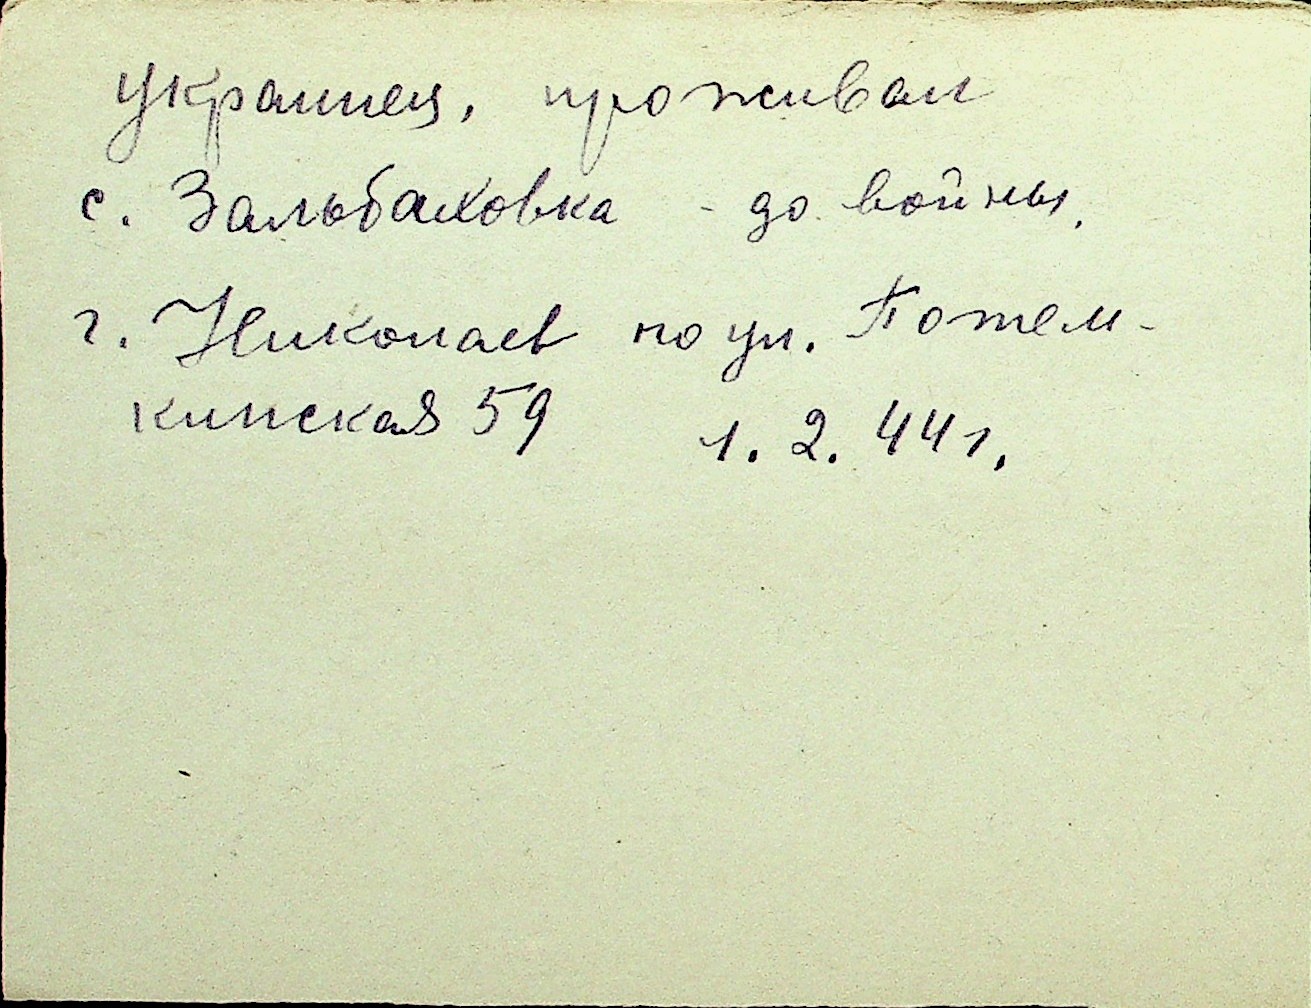 украинец, проживал
с. Зальбаховка - до войны,
г. Николаев по ул. Потем-
кинская 59 1. 2. 44 г.